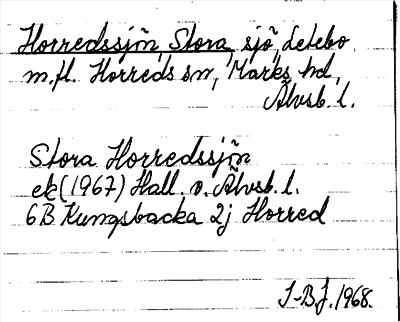 Horredssjön, Stora, sjö, Letebo
m.fl. Horreds sn, Marks hd,
Älvsb. l.
Stora Horredssjön
ek (1967) Hall. o. Älvsb. l.
6B Kungsbacka 2j Horred
I-BJ. 1968.